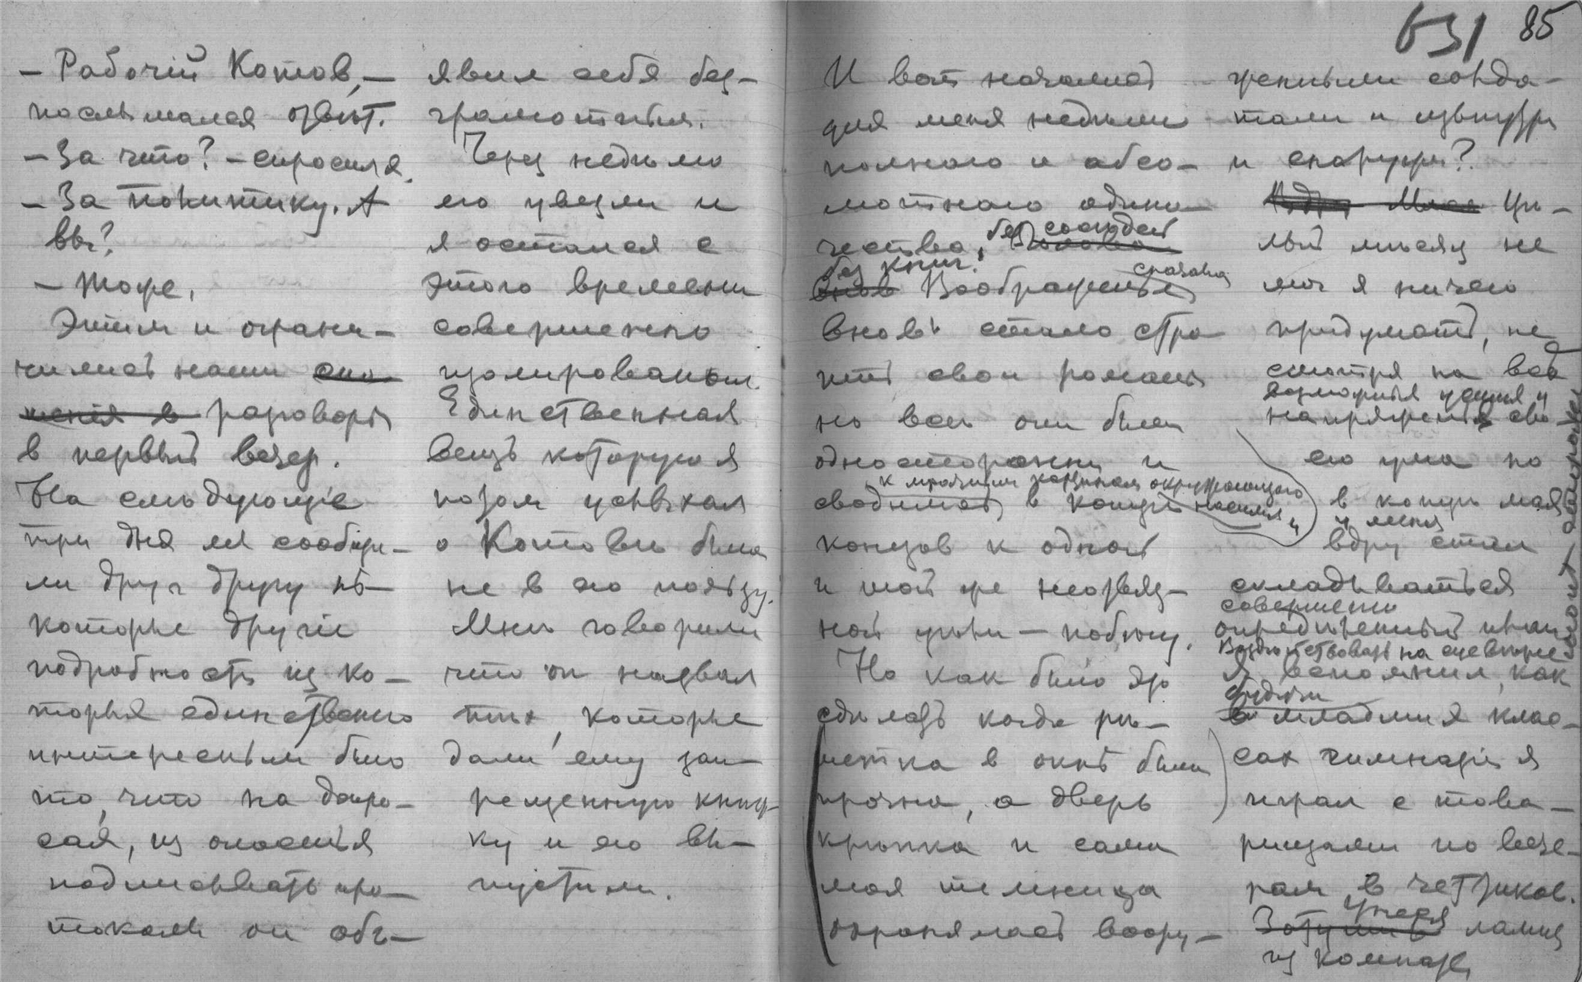 631 85
– Рабочій Котов, –
послышался отвѣт.
– За что? – спросил я.
– За политику. А
вы?
– Тоже.
Этим и ограни-
чились наши сно
шенія в разговоры
в первый вечер.
На слѣдующіе
три дня мы сообщи-
ли друг другу нѣ-
которые другіе
подробности из ко-
торых единственно
интересным было
то, что на допро-
сах, из опасенья
подписывать про-
токолы он объ-
явил себя без-
грамотным.
Через недѣлю
его увезли и
я остался с
этого времени
совершенно
изолированным.
Единственная
вещь которую я
потом услыхал
о Котовѣ была
не в его пользу.
Мнѣ говорили
что он назвал
тѣх, которые
дали ему зап-
рещенную книж-
ку и его вы-
пустили.
И вот начались
для меня недѣли
полного и абсо-
лютного одино-
чества, без сосѣдей
без книг.
Воображенье сразу
вновь стало стро-
ить свои романы
но все они были
односторонни и
к мрачным картинам окружающего
сводились в концѣ насилия и
концов к одной
и той же неотвяз-
ной цѣли – побѣгу.
Но как было это
сдѣлать когда рѣ-
шетка в окнѣ была
прочна, а дверь
крѣпка и сама
моя темница
охранялась воору-
женными солда-
тами и изнутри
и снаружи?
Вдруг Мысль Цѣ-
лый мѣсяц не
мог я ничего
придумать, не
смотря на всѣ
возможныя усилія и
напряженія сво
его ума но
в концѣ
у меня
вдруг стал
складываться
совершенно
опредѣленный план
Воздѣйствовать на суевѣріе
Я вспомнил, как
будучи
в младших клас-
сах гимназіи я
играл с това-
рищами по вече-
рам в чертиков.
Унеся
Затушив лампу
из комнаты,